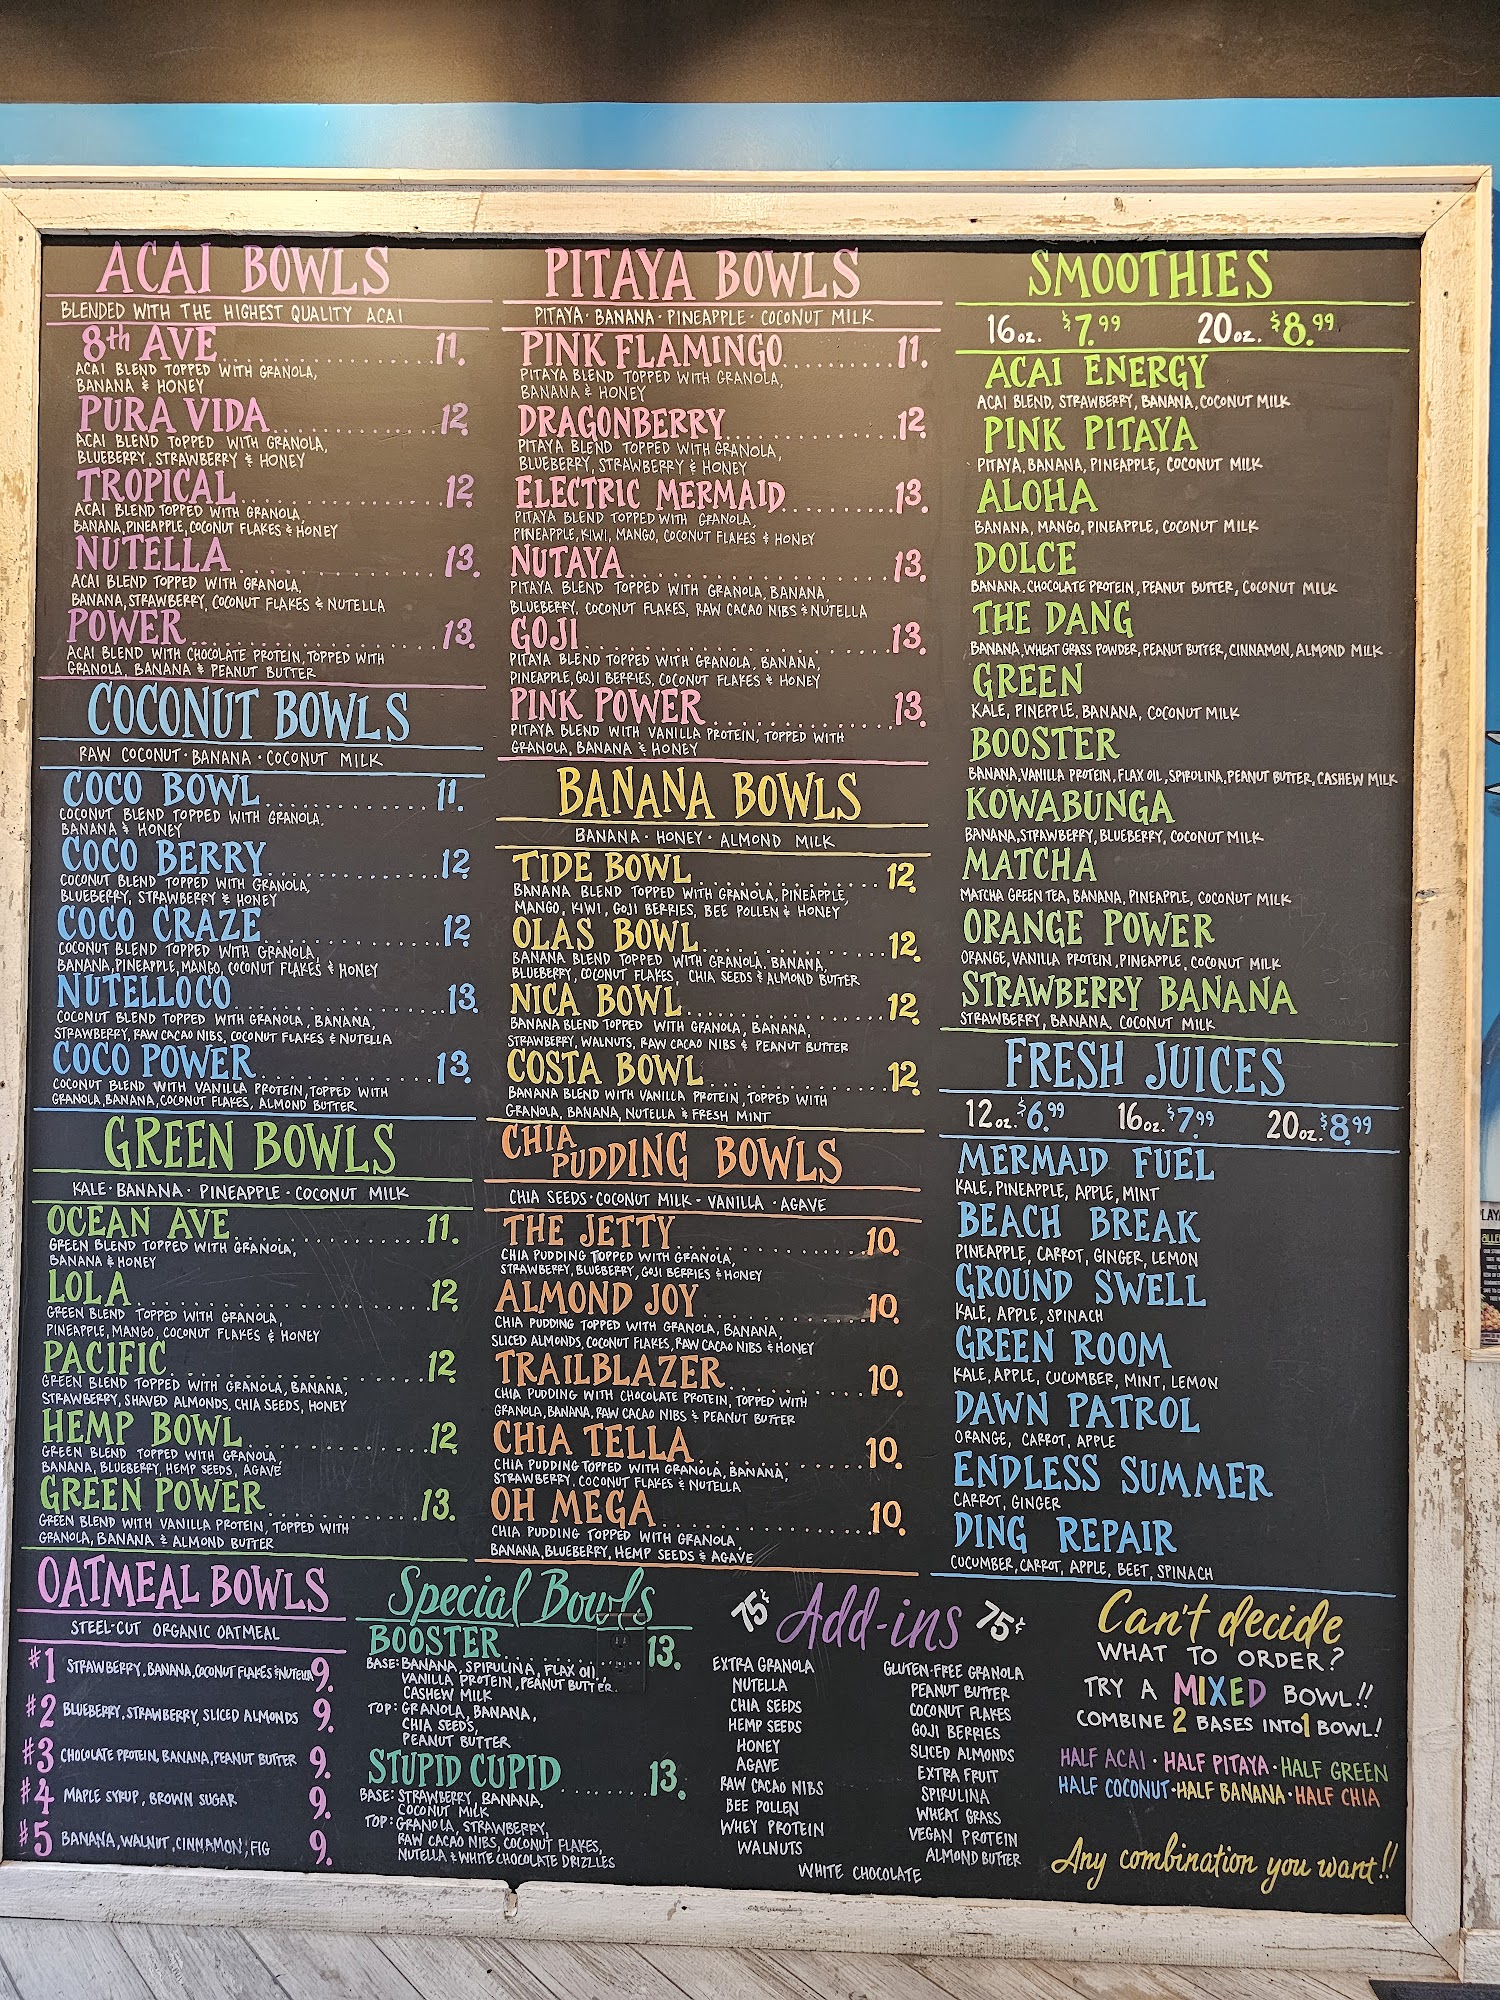 ACAI BOWLS
BLENDED WITH THE HIGHEST QUALITY ACAI
8th AVE 11.
ACAI BLEND TOPPED WITH GRANOLA,
BANANA & HONEY
PURA VIDA 12.
ACAI BLEND TOPPED WITH GRANOLA,
BLUEBERRY, STRAWBERRY & HONEY
TROPICAL 12.
ACAI BLEND TOPPED WITH GRANOLA,
BANANA, PINEAPPLE, COCONUT FLAKES & HONEY
NUTELLA 13.
ACAI BLEND TOPPED WITH GRANOLA,
BANANA, STRAWBERRY, COCONUT FLAKES & NUTELLA
POWER 13.
ACAI BLEND WITH CHOCOLATE PROTEIN, TOPPED WITH
GRANOLA, BANANA & PEANUT BUTTER
COCONUT BOWLS
RAW COCONUT · BANANA · COCONUT MILK
COCO BOWL 11.
COCONUT BLEND TOPPED WITH GRANOLA,
BANANA & HONEY
COCO BERRY 12.
COCONUT BLEND TOPPED WITH GRANOLA,
BLUEBERRY, STRAWBERRY & HONEY
COCO CRAZE 12.
COCONUT BLEND TOPPED WITH GRANOLA,
BANANA, PINEAPPLE, MANGO, COCONUT FLAKES & HONEY
NUTELLOCO 13.
COCONUT BLEND TOPPED WITH GRANOLA, BANANA,
STRAWBERRY, RAW CACAO NIBS, COCONUT FLAKES & NUTELLA
COCO POWER 13.
COCONUT BLEND WITH VANILLA PROTEIN, TOPPED WITH
GRANOLA, BANANA, COCONUT FLAKES, ALMOND BUTTER
GREEN BOWLS
KALE · BANANA · PINEAPPLE · COCONUT MILK
OCEAN AVE 11.
GREEN BLEND TOPPED WITH GRANOLA,
BANANA & HONEY
LOLA 12.
GREEN BLEND TOPPED WITH GRANOLA,
PINEAPPLE, MANGO, COCONUT FLAKES & HONEY
PACIFIC 12.
GREEN BLEND TOPPED WITH GRANOLA, BANANA,
STRAWBERRY, SHAVED ALMONDS, CHIA SEEDS, HONEY
HEMP BOWL 12.
GREEN BLEND TOPPED WITH GRANOLA,
BANANA, BLUEBERRY, HEMP SEEDS, AGAVE
GREEN POWER 13.
GREEN BLEND WITH VANILLA PROTEIN, TOPPED WITH
GRANOLA, BANANA & ALMOND BUTTER
OATMEAL BOWLS
STEEL-CUT ORGANIC OATMEAL
#1 STRAWBERRY, BANANA, COCONUT FLAKES & NUTELLA 9.
#2 BLUEBERRY, STRAWBERRY, SLICED ALMONDS 9.
#3 CHOCOLATE PROTEIN, BANANA, PEANUT BUTTER 9.
#4 MAPLE SYRUP, BROWN SUGAR 9.
#5 BANANA, WALNUT, CINNAMON, FIG 9.
PITAYA BOWLS
PITAYA · BANANA · PINEAPPLE · COCONUT MILK
PINK FLAMINGO 11.
PITAYA BLEND TOPPED WITH GRANOLA,
BANANA & HONEY
DRAGONBERRY 12.
PITAYA BLEND TOPPED WITH GRANOLA,
BLUEBERRY, STRAWBERRY & HONEY
ELECTRIC MERMAID 13.
PITAYA BLEND TOPPED WITH GRANOLA,
PINEAPPLE, KIWI, MANGO, COCONUT FLAKES & HONEY
NUTAYA 13.
PITAYA BLEND TOPPED WITH GRANOLA, BANANA,
BLUEBERRY, COCONUT FLAKES, RAW CACAO NIBS & NUTELLA
GOJI 13.
PITAYA BLEND TOPPED WITH GRANOLA, BANANA,
PINEAPPLE, GOJI BERRIES, COCONUT FLAKES & HONEY
PINK POWER 13.
PITAYA BLEND WITH VANILLA PROTEIN, TOPPED WITH
GRANOLA, BANANA & HONEY
BANANA BOWLS
BANANA · HONEY · ALMOND MILK
TIDE BOWL 12.
BANANA BLEND TOPPED WITH GRANOLA, PINEAPPLE,
MANGO, KIWI, GOJI BERRIES, BEE POLLEN & HONEY
OLAS BOWL 12.
BANANA BLEND TOPPED WITH GRANOLA, BANANA,
BLUEBERRY, COCONUT FLAKES, CHIA SEEDS & ALMOND BUTTER
NICA BOWL 12.
BANANA BLEND TOPPED WITH GRANOLA, BANANA,
STRAWBERRY, WALNUTS, RAW CACAO NIBS & PEANUT BUTTER
COSTA BOWL 12.
BANANA BLEND WITH VANILLA PROTEIN, TOPPED WITH
GRANOLA, BANANA, NUTELLA & FRESH MINT
CHIA PUDDING BOWLS
CHIA SEEDS · COCONUT MILK - VANILLA · AGAVE
THE JETTY 10.
CHIA PUDDING TOPPED WITH GRANOLA,
STRAWBERRY, BLUEBERRY, GOJI BERRIES & HONEY
ALMOND JOY 10.
CHIA PUDDING TOPPED WITH GRANOLA, BANANA,
SLICED ALMONDS, COCONUT FLAKES, RAW CACAO NIBS & HONEY
TRAILBLAZER 10.
CHIA PUDDING WITH CHOCOLATE PROTEIN, TOPPED WITH
GRANOLA, BANANA, RAW CACAO NIBS & PEANUT BUTTER
CHIA TELLA 10.
CHIA PUDDING TOPPED WITH GRANOLA, BANANA,
STRAWBERRY, COCONUT FLAKES & NUTELLA
OH MEGA 10.
CHIA PUDDING TOPPED WITH GRANOLA,
BANANA, BLUEBERRY, HEMP SEEDS & AGAVE
Special Bowls
BOOSTER 13.
BASE: BANANA, SPIRULINA, FLAX OIL,
VANILLA PROTEIN, PEANUT BUTTER.
CASHEW MILK
TOP: GRANOLA, BANANA,
CHIA SEEDS,
PEANUT BUTTER
STUPID CUPID 13.
BASE: STRAWBERRY, BANANA,
COCONUT MILK
TOP: GRANOLA, STRAWBERRY,
RAW CACAO NIBS, COCONUT FLAKES,
NUTELLA & WHITE CHOCOLATE DRIZZLES
SMOOTHIES
16oz. $7.99 20oz. $8.99
ACAI ENERGY
ACAI BLEND, STRAWBERRY, BANANA, COCONUT MILK
PINK PITAYA
PITAYA, BANANA, PINEAPPLE, COCONUT MILK
ALOHA
BANANA, MANGO, PINEAPPLE, COCONUT MILK
DOLCE
BANANA, CHOCOLATE PROTEIN, PEANUT BUTTER, COCONUT MILK
THE DANG
BANANA, WHEAT GRASS POWDER, PEANUT BUTTER, CINNAMON, ALMOND MILK
GREEN
KALE, PINEPPLE, BANANA, COCONUT MILK
BOOSTER
BANANA, VANILLA PROTEIN, FLAX OIL, SPIRULINA, PEANUT BUTTER, CASHEW MILK
KOWABUNGA
BANANA, STRAWBERRY, BLUEBERRY, COCONUT MILK
MATCHA
MATCHA GREEN TEA, BANANA, PINEAPPLE, COCONUT MILK
ORANGE POWER
ORANGE, VANILLA PROTEIN, PINEAPPLE, COCONUT MILK
STRAWBERRY BANANA
STRAWBERRY, BANANA, COCONUT MILK
FRESH JUICES
12oz. $6.99 16oz. $7.99 20oz. $8.99
MERMAID FUEL
KALE, PINEAPPLE, APPLE, MINT
BEACH BREAK
PINEAPPLE, CARROT, GINGER, LEMON
GROUND SWELL
KALE, APPLE, SPINACH
GREEN ROOM
KALE, APPLE, CUCUMBER, MINT, LEMON
DAWN PATROL
ORANGE, CARROT, APPLE
ENDLESS SUMMER
CARROT, GINGER
DING REPAIR
CUCUMBER, CARROT, APPLE, BEET, SPINACH
75¢ Add-ins 75¢
EXTRA GRANOLA
NUTELLA
CHIA SEEDS
HEMP SEEDS
HONEY
AGAVE
RAW CACAO NIBS
BEE POLLEN
WHEY PROTEIN
WALNUTS
GLUTEN-FREE GRANOLA
PEANUT BUTTER
COCONUT FLAKES
GOJI BERRIES
SLICED ALMONDS
EXTRA FRUIT
SPIRULINA
WHEAT GRASS
VEGAN PROTEIN
ALMOND BUTTER
WHITE CHOCOLATE
Can't decide
WHAT TO ORDER?
TRY A MIXED BOWL!!
COMBINE 2 BASES INTO 1 BOWL!
HALF ACAI · HALF PITAYA · HALF GREEN
HALF COCONUT · HALF BANANA · HALF CHIA
Any combination you want!!